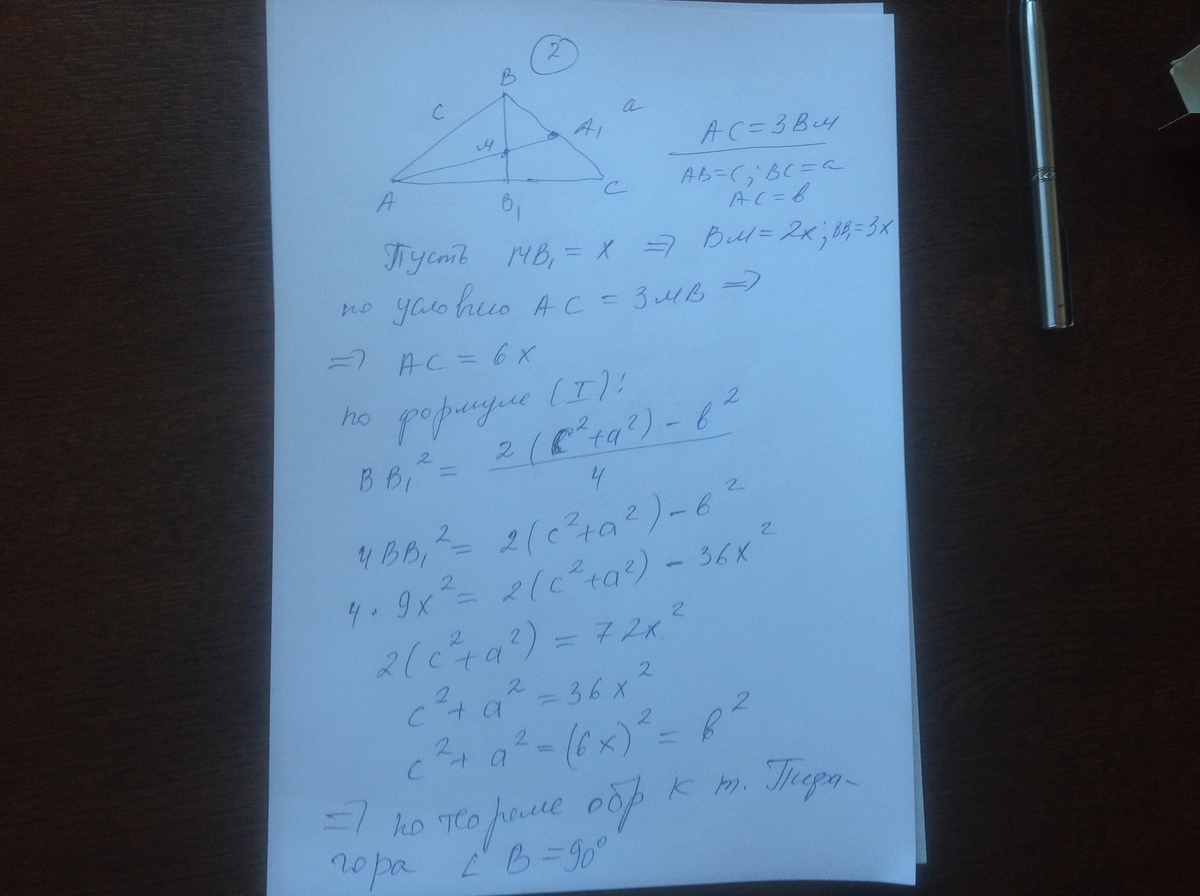 2
B
c
a
A₁
M
A
B₁
C
AC = 3BM
AB = c; BC = a
AC = b
Пусть MB₁ = x ⇒ BM = 2x; BB₁ = 3x
по условию AC = 3MB ⇒
⇒ AC = 6x
по формуле (I):
BB₁² = (2(c² + a²) - b²) / 4
4BB₁² = 2(c² + a²) - b²
4 · 9x² = 2(c² + a²) - 36x²
2(c² + a²) = 72x²
c² + a² = 36x²
c² + a² = (6x)² = b²
⇒ по теореме обр к т. Пифа-
гора ∠ B = 90°